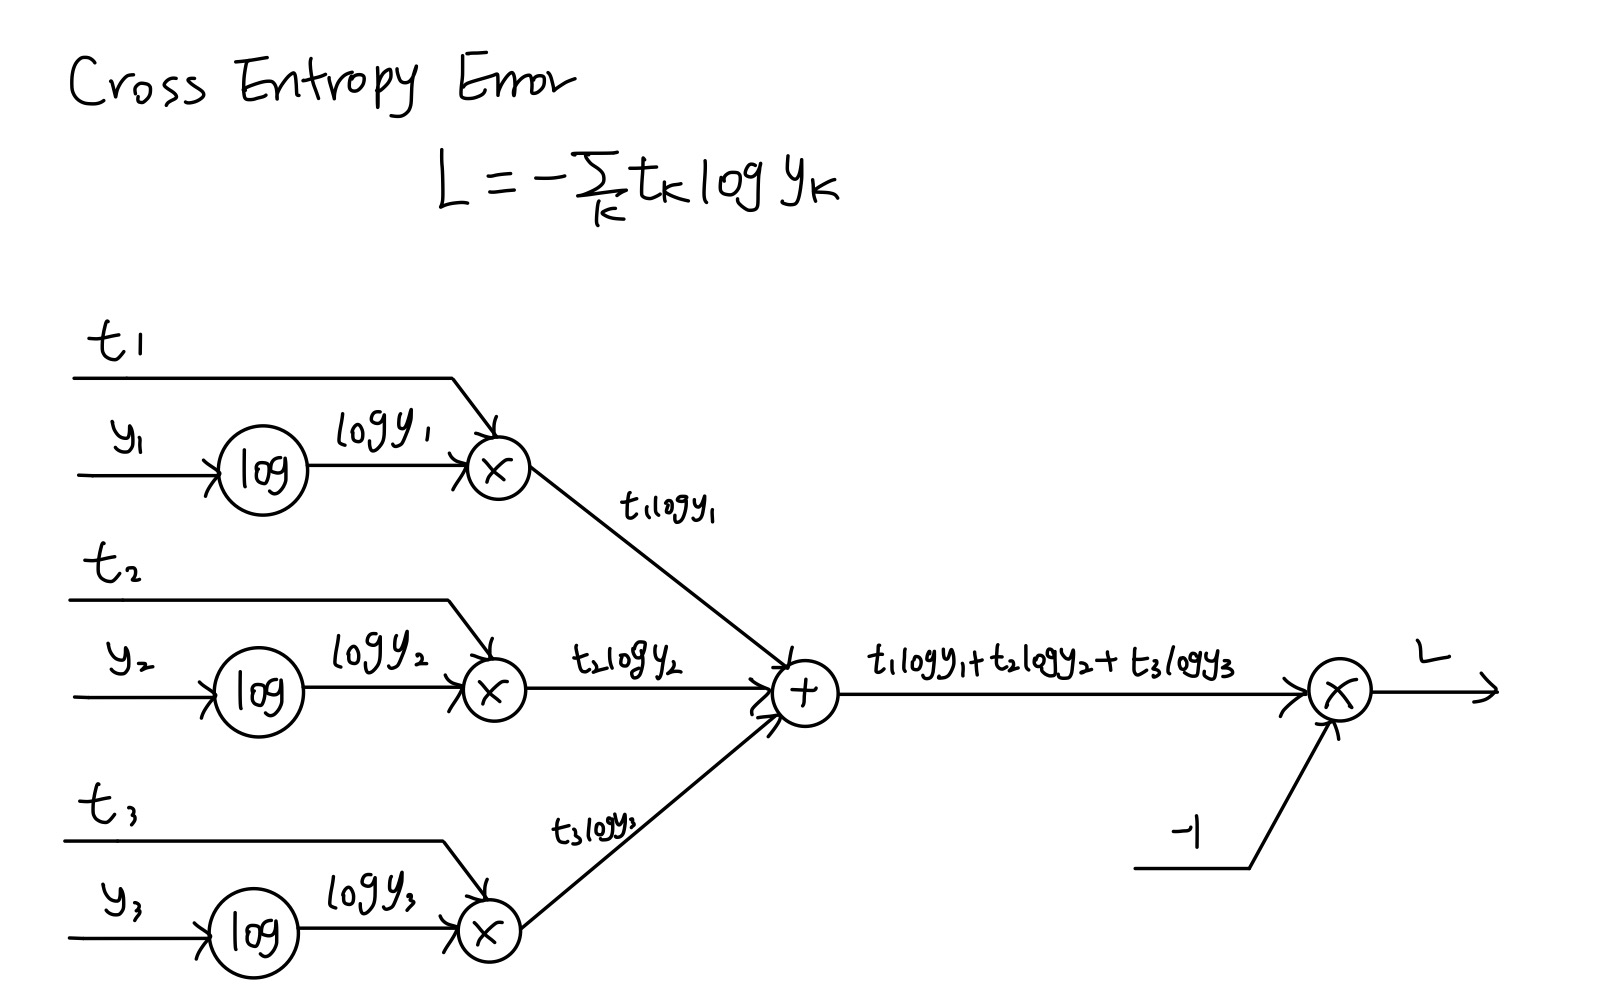 Cross Entropy Error
L = -∑ₖ tₖ log yₖ
t₁
y₁ log log y₁ ×
t₁ log y₁
t₂
y₂ log log y₂ × t₂ log y₂ + t₁ log y₁ + t₂ log y₂ + t₃ log y₃ × L
t₃
t₃ log y₃
-1
y₃ log log y₃ ×